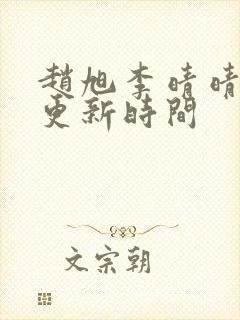 趙旭李晴晴
更新時間
文宗朝